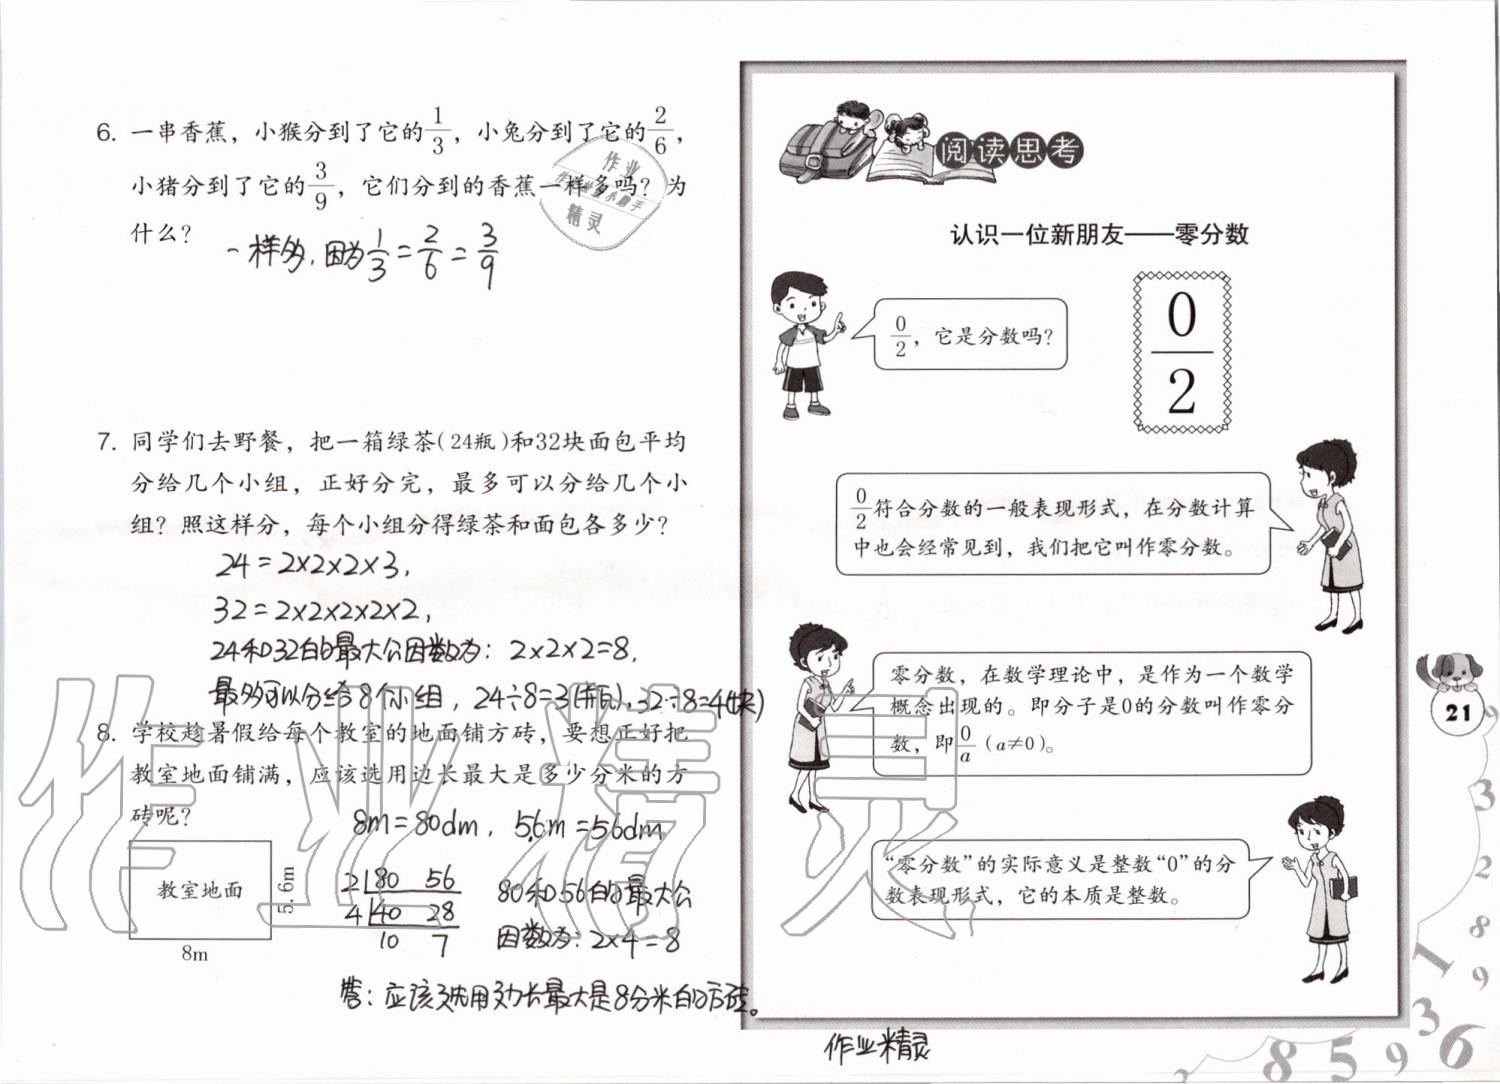 6. 一串香蕉，小猴分到了它的1/3，小兔分到了它的2/6，
小猪分到了它的3/9，它们分到的香蕉一样多吗？为
什么？
一样多，因为1/3=2/6=3/9
7. 同学们去野餐，把一箱绿茶（24瓶）和32块面包平均
分给几个小组，正好分完，最多可以分给几个小
组？照这样分，每个小组分得绿茶和面包各多少？
24=2×2×2×3，
32=2×2×2×2×2，
24和32的最大公因数为：2×2×2=8，
最多可以分给8个小组，24÷8=3(瓶)，32÷8=4(块)
8. 学校趁暑假给每个教室的地面铺方砖，要想正好把
教室地面铺满，应该选用边长最大是多少分米的方
砖呢？
8m=80dm，5.6m=56dm
教室地面
5.6m
8m
2 80 56
4 40 28
10 7
80和56的最大公
因数为：2×4=8
答：应该选用边长最大是8分米的方砖。
阅读思考
认识一位新朋友——零分数
0/2，它是分数吗？
0/2
0/2符合分数的一般表现形式，在分数计算
中也会经常见到，我们把它叫作零分数。
零分数，在数学理论中，是作为一个数学
概念出现的。即分子是0的分数叫作零分
数，即0/a（a≠0）。
“零分数”的实际意义是整数“0”的分
数表现形式，它的本质是整数。
21
作业精灵
作业精灵
作业
精灵